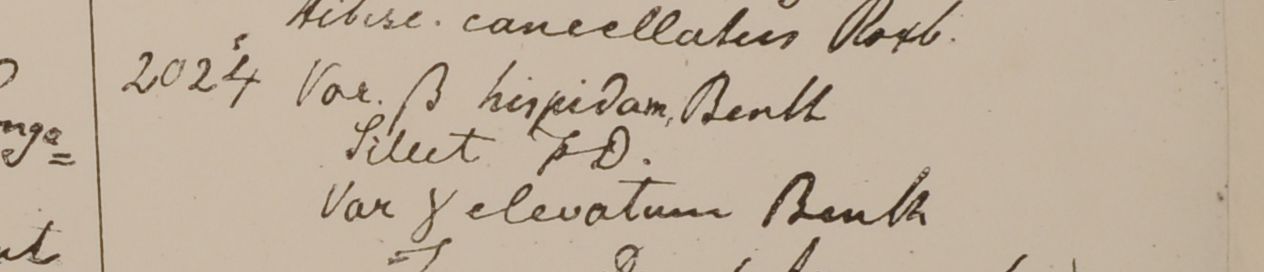 Hibisc. cancellatus Roxb.
2024 Var. β hispidam, Benth
Sillet F.D.
Var γ elevatum Benth